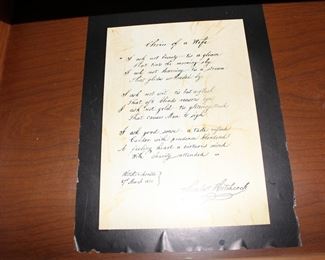 Choice of a Wife
I ask not beauty 'tis a gleam
That tints the morning sky
I ask not learning 'tis a stream
That glides unheeded by
I ask not wit 'tis but a flash
That oft blinds reason's eye
I ask not gold 'tis glittering trash
That causes Men to sigh
I ask good sense a taste refin'd
Candor with prudence blended
A feeling heart a virtuous mind
With charity attended
March
Hitchcock